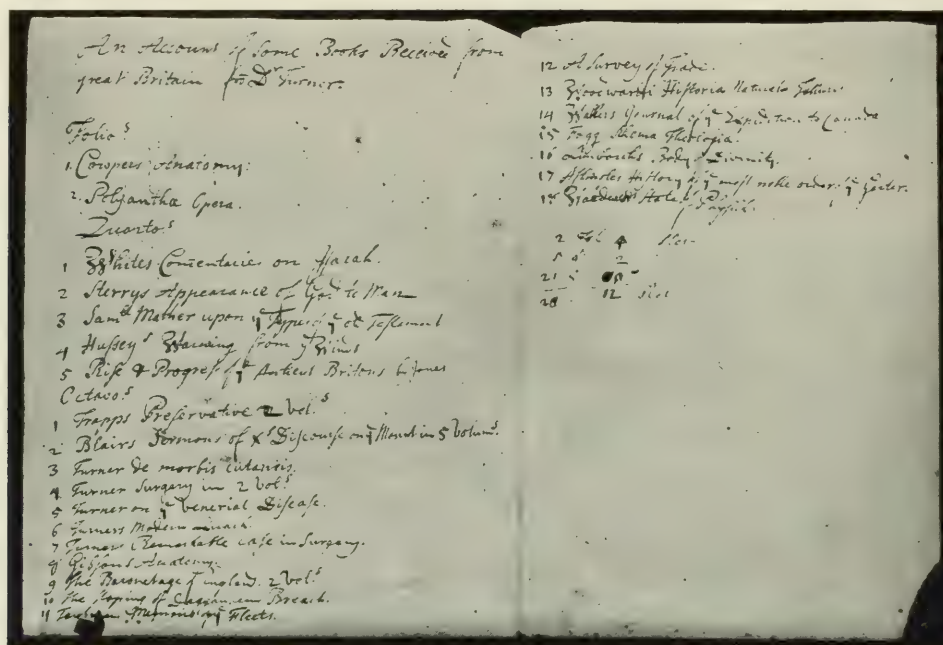 An Account of Some Books Received from
great Britain frō Dr Turner.
Folio.s
1. Cowpers Anatomy.
2. Polyantha Opera.
Quarto.s
1 Whites Comentaries on Isaiah.
2 Sterrys Appearance of God to Man
3 Saml Mather upon ye Types of ye old Testament
4 Hussey's Warning from ye Winds
5 Rise & Progress of ye Antient Britons by Jones
Octavo.s
1 Trapps Preservative 2 Vol.s
2 Blairs Sermons of Xs Discourse on ye Mount in 5 Volums.
3 Turner de morbis cutaneis.
4 Turner Surgery in 2 Vol.s
5 Turner on ye Venerial Disease.
6 Turners Modern Quack.
7 Turners Remarkable case in Surgery.
8 Gibsons Anatomy.
9 The Baronetage of England. 2 Vol.s
10 The Stoping of Breach.
11 Memoirs of Fleets.
12 A Survey of Trade.
13 Historia
14 Walkers Journal of ye Expedition to Canada
15 Fogg Theologia
16 Body of Divinity.
17 Ashmoles History of ye most noble order of ye Garter.
18 State
2 Fol 4
5 2
21
28 12